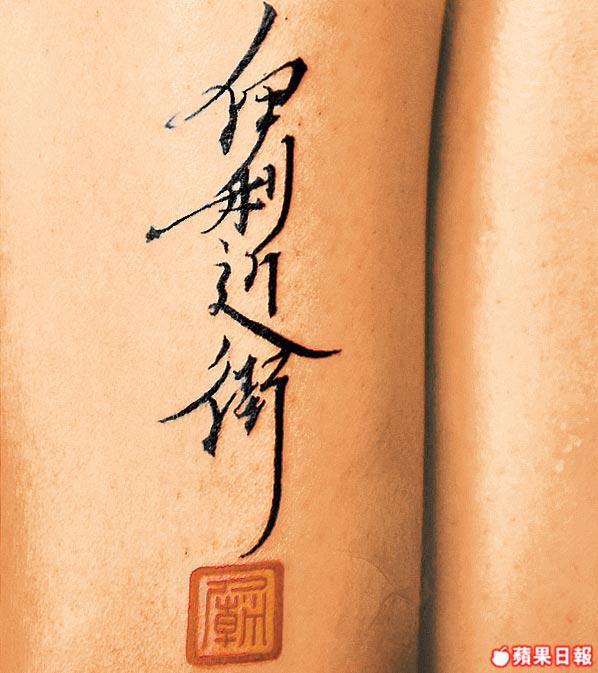 伊利近街
蘋果日報